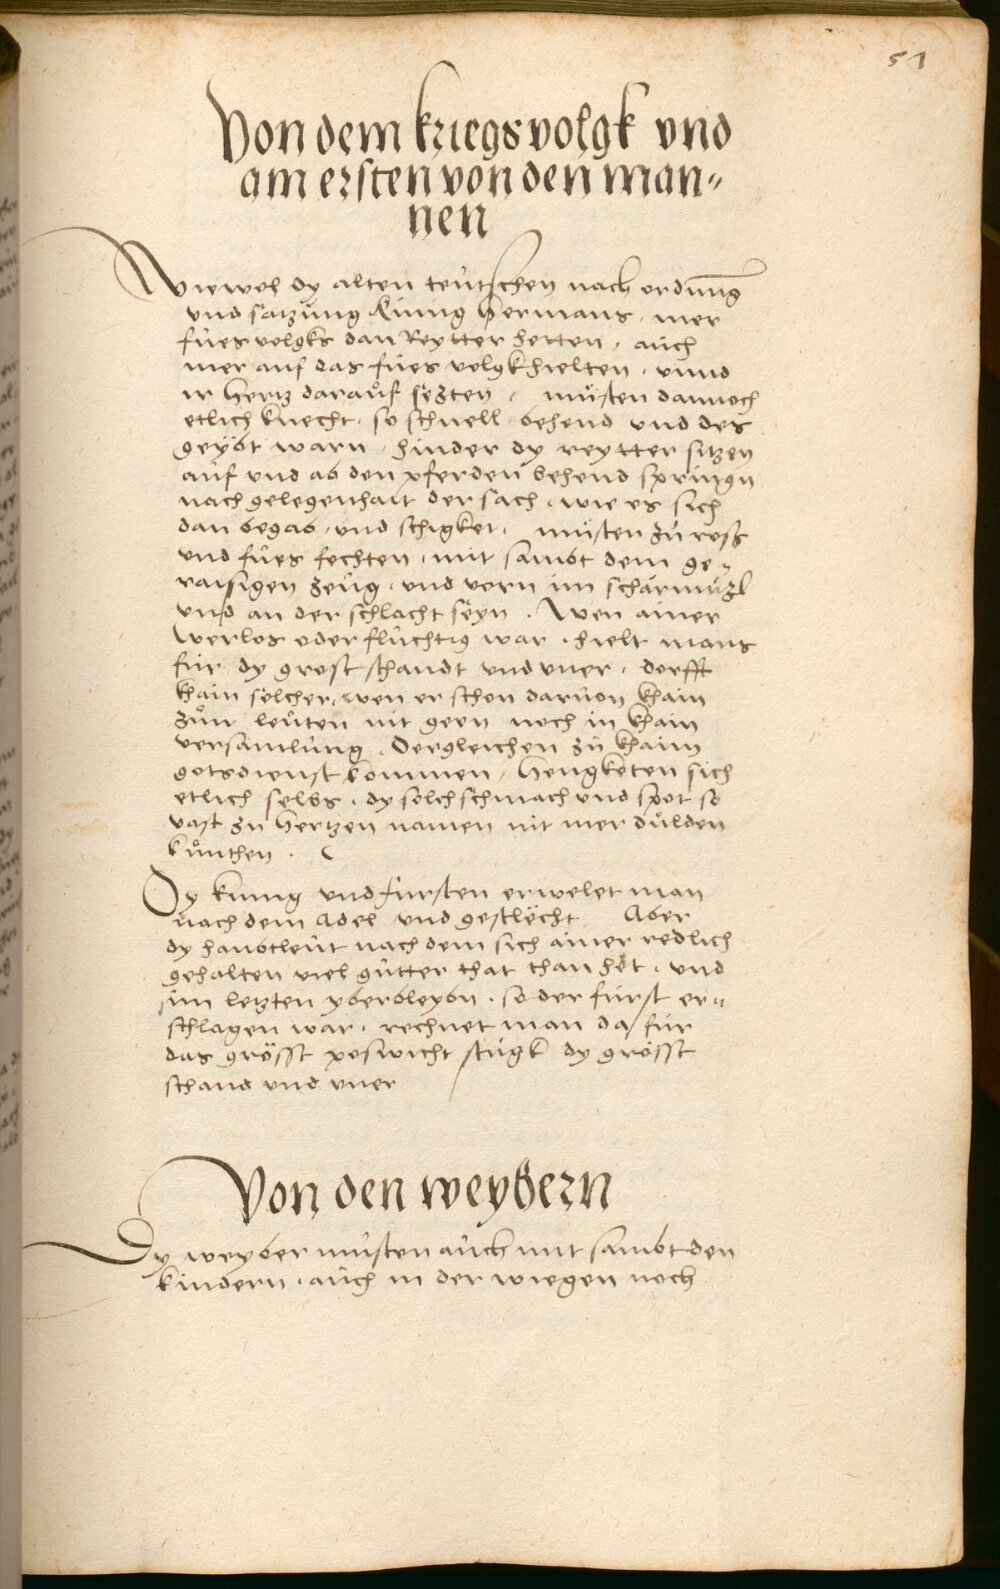 51
Von dem kriegsvolgk vnd
am ersten von den man=
nen
Wiewol dy alten teutschen nach ordnung
vnd satzung Künig Hermans, mer
fues volgks dan Reytter hetten, auch
mer auf das fues volgk hielten, vnnd
ir Hertz darauf setzten, müsten dannoch
etlich knecht, so schnell, behend vnd des
geybt warn, hinder dy reytter sitzen
auf vnd ab den pferden behend springn
nach gelegenhait der sach, wie es sich
dan begab, vnd schigket, müsten zu ross
vnd fues fechten, mit sambt dem ge=
raisigen zeug, vnd vorn im scharmützl
vnd an der schlacht seyn. Wen ainer
werlos oder fluchtig war, hielt mans
für dy grost schandt vnd vner, dorfft
khain sölcher, wen er schon daruon kham
zun leuten nit geen noch in khain
versamlung. Dergleichen zu khaim
gotsdienst kommen, Hengketen sich
etlich selbs, dy solch schmach vnd spot so
vast zu Hertzen namen nit mer dulden
kunthen.
Dy künig vnd fursten erwelet man
nach dem Adel vnd gestlecht Aber
dy haubtleut nach dem sich ainer redlich
gehalten viel gutter that than het, vnd
im letzten yberbleybn, so der fürst er=
schlagen war, rechnet man da für
das grösst poswicht stugk dy grösst
schand vnd vner
Von den weybern
Dy weyber musten auch mit sambt den
kindern, auch in der wiegen noch